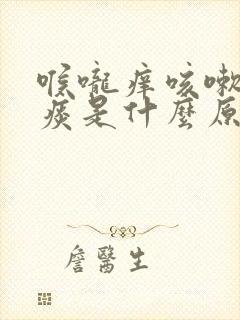 喉嚨痒咳嗽
痰是什麼原
詹醫生